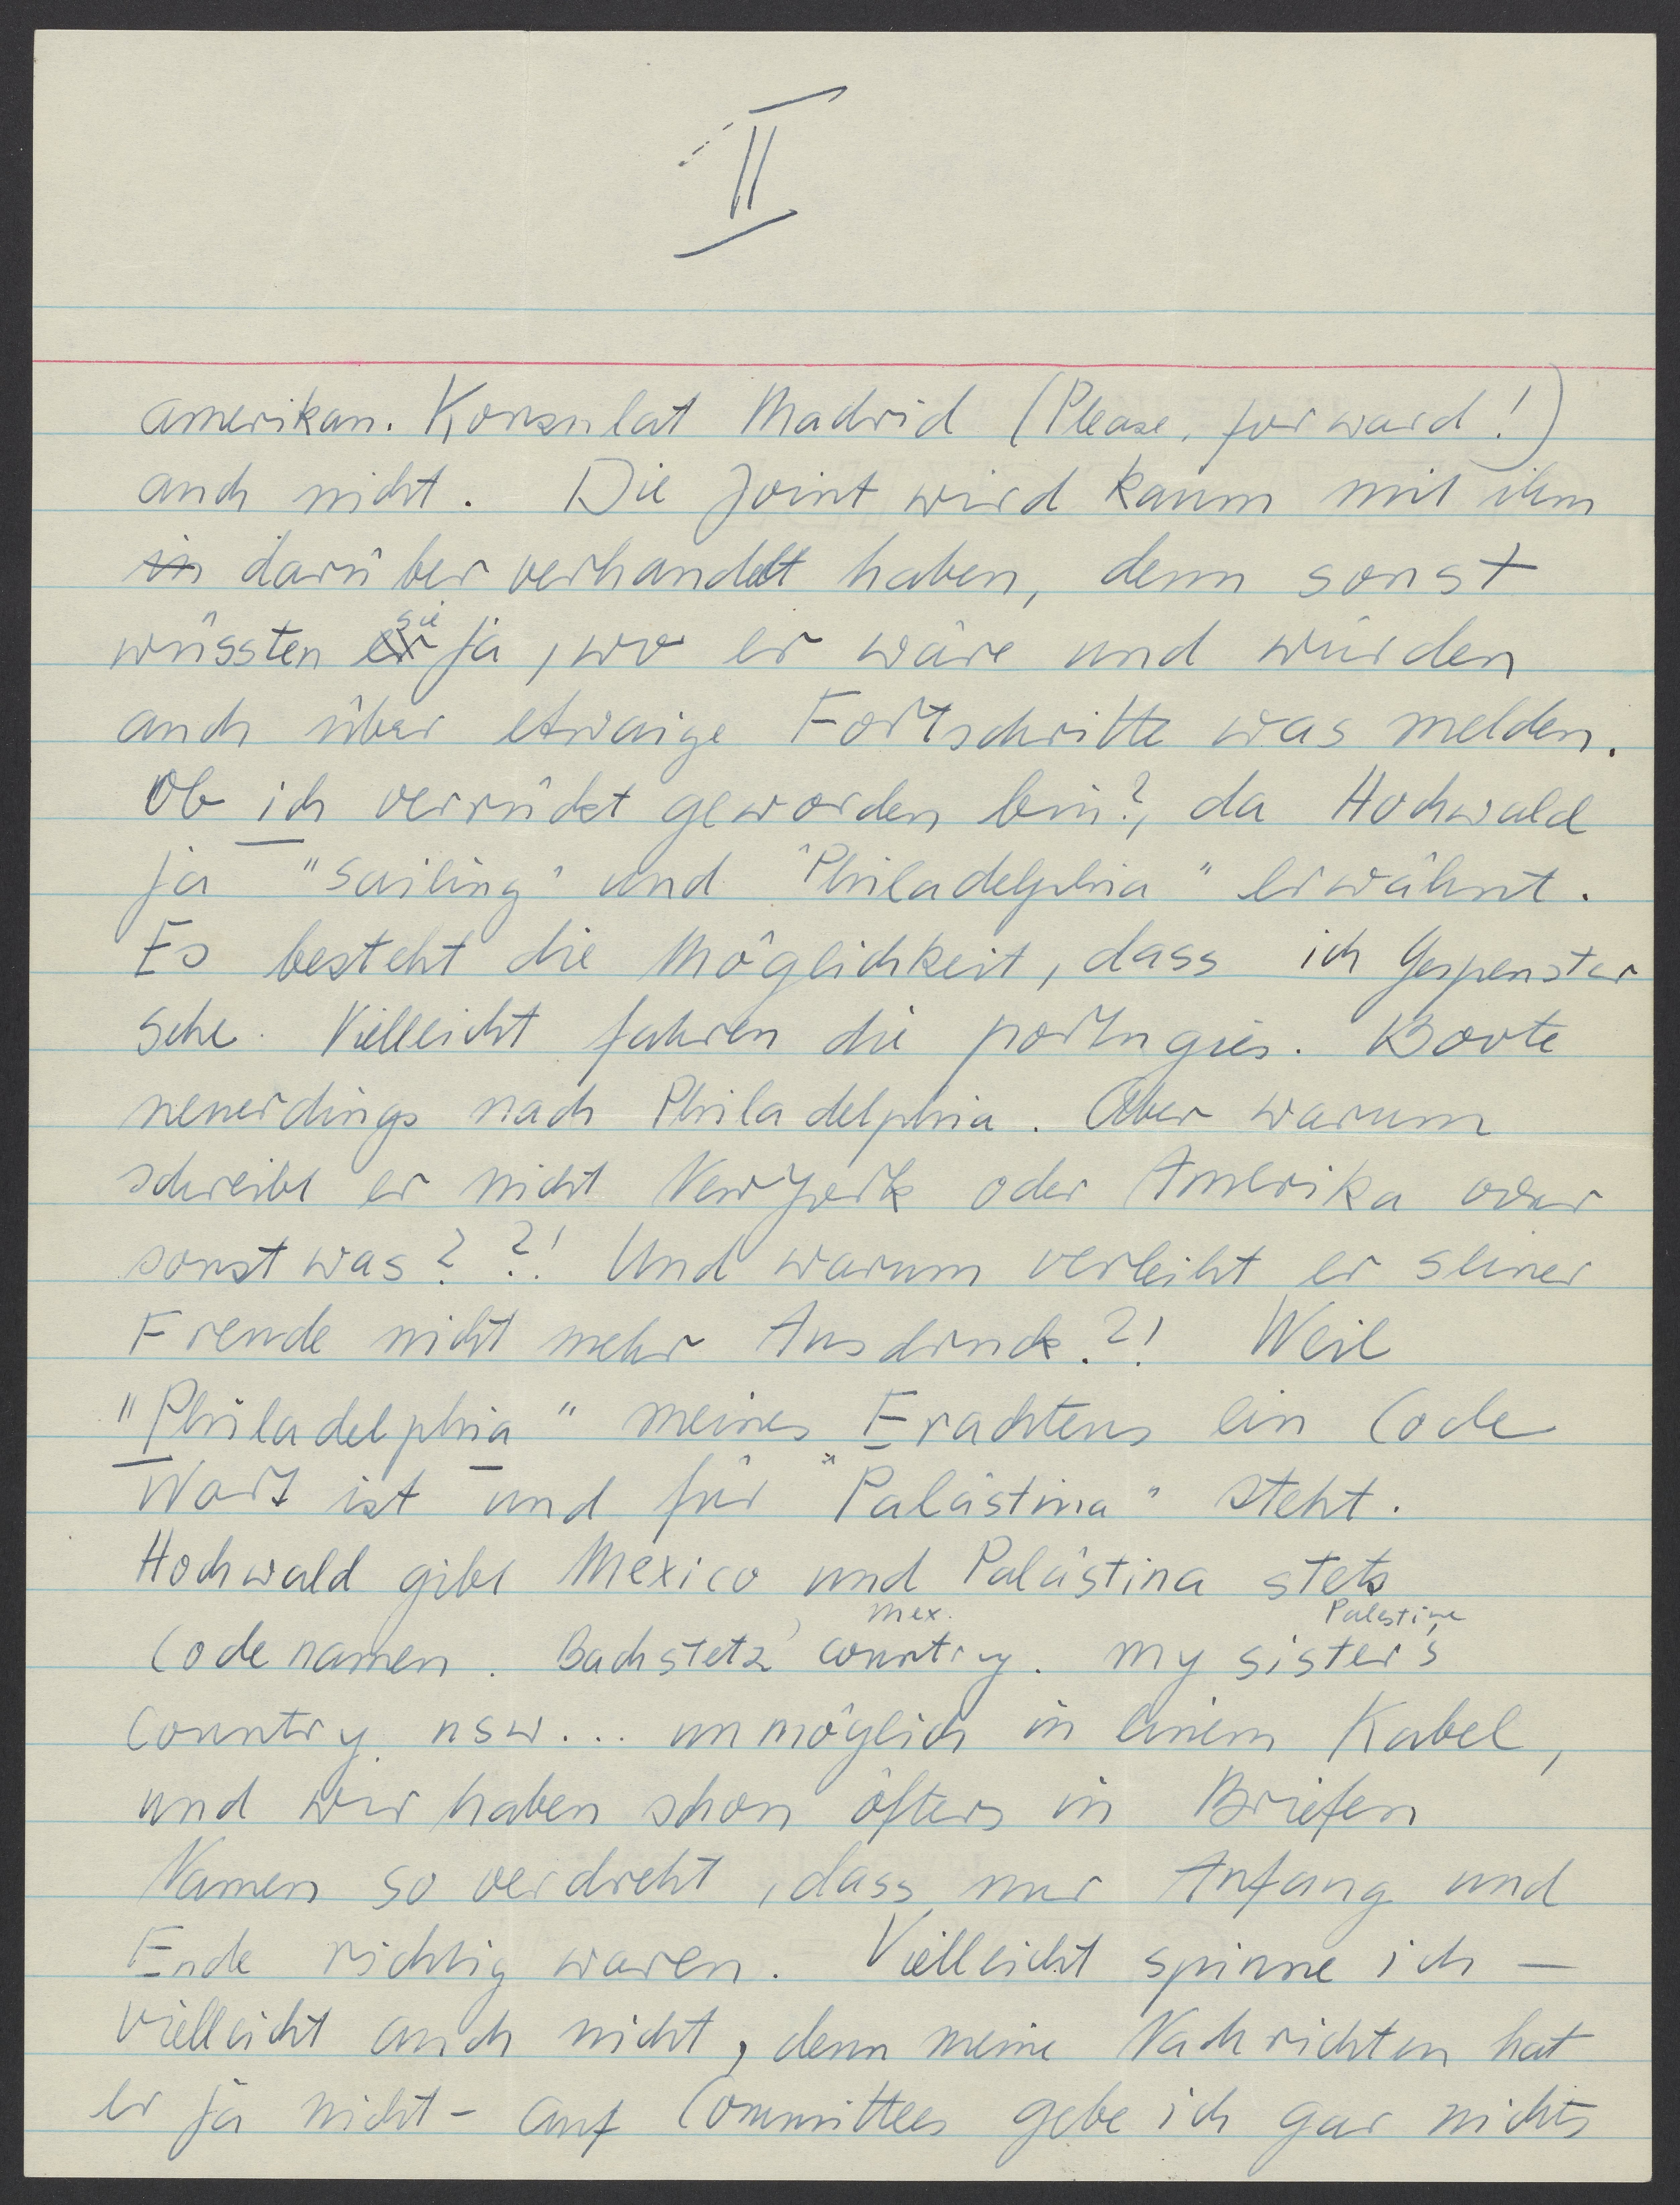 II
amerikan. Konsulat Madrid (Please, forward!)
auch nicht. Die Joint wird kaum mit ihm
in darüber verhandelt haben, denn sonst
wüssten er sie ja, wo er wäre und würden
auch über etwaige Fortschritte was melden.
Ob ich verrückt geworden bin?, da Hochwald
ja "sailing" und "Philadelphia" erwähnt.
Es besteht die Möglichkeit, dass ich Gespenster
sehe. Vielleicht fahren die portugies. Boote
neuerdings nach Philadelphia. Aber warum
schreibt er nicht New York oder Amerika oder
sonst was? ?! Und warum verleiht er seiner
Freude nicht mehr Ausdruck.?! Weil
"Philadelphia" meines Erachtens ein Code
Wort ist und für "Palästina" steht.
Hochwald gibt Mexico und Palästina stets
mex. Palestine
Codenamen. Bachstetz' country. my sister's
Country usw... unmöglich in einem Kabel,
und wir haben schon öfters in Briefen
Namen so verdreht, dass nur Anfang und
Ende richtig waren. Vielleicht spinne ich —
vielleicht auch nicht, denn meine Nachrichten hat
er ja nicht - auf Committees gebe ich gar nichts